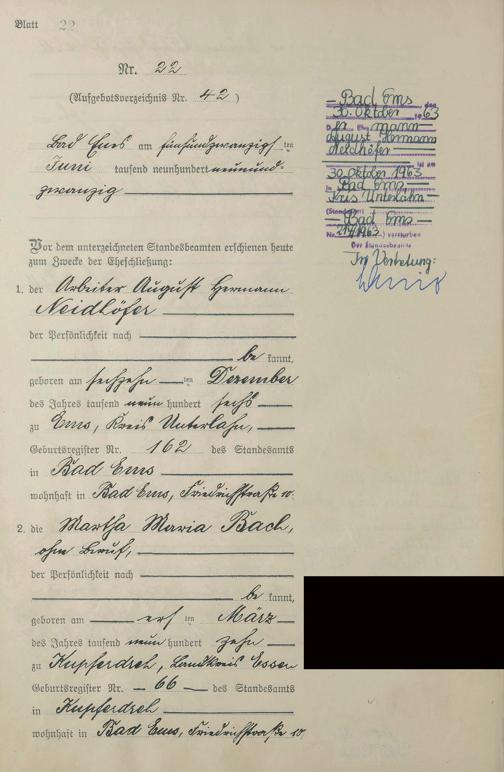 Blatt 22
Nr. 22
(Aufgebotsverzeichnis Nr. 42)
Bad Ems am fünfundzwanzigsten
Juni tausend neunhundert neunund-
zwanzig
Vor dem unterzeichneten Standesbeamten erschienen heute
zum Zwecke der Eheschließung:
1. der Arbeiter August Hermann
Neidhöfer
der Persönlichkeit nach
be kannt,
geboren am sechzehn ten Dezember
des Jahres tausend neun hundert sechs
zu Ems, Kreis Unterlahn,
Geburtsregister Nr. 162 des Standesamts
in Bad Ems
wohnhaft in Bad Ems, Friedrichstraße 10.
2. die Martha Maria Bach,
ohne Beruf,
der Persönlichkeit nach
be kannt,
geboren am ersten März
des Jahres tausend neun hundert zehn
zu Kupferdreh, Landkreis Essen
Geburtsregister Nr. 66 des Standesamts
in Kupferdreh
wohnhaft in Bad Ems, Friedrichstraße 10.
Bad Ems den
30. Oktober 1963
D er Ehemann
August Hermann
Neidhöfer
ist am
30. Oktober 1963
in Bad Ems
Kreis Unterlahn
(Standesamt
Bad Ems
Nr. 214/1963) verstorben
Der Standesbeamte
In Vertretung: